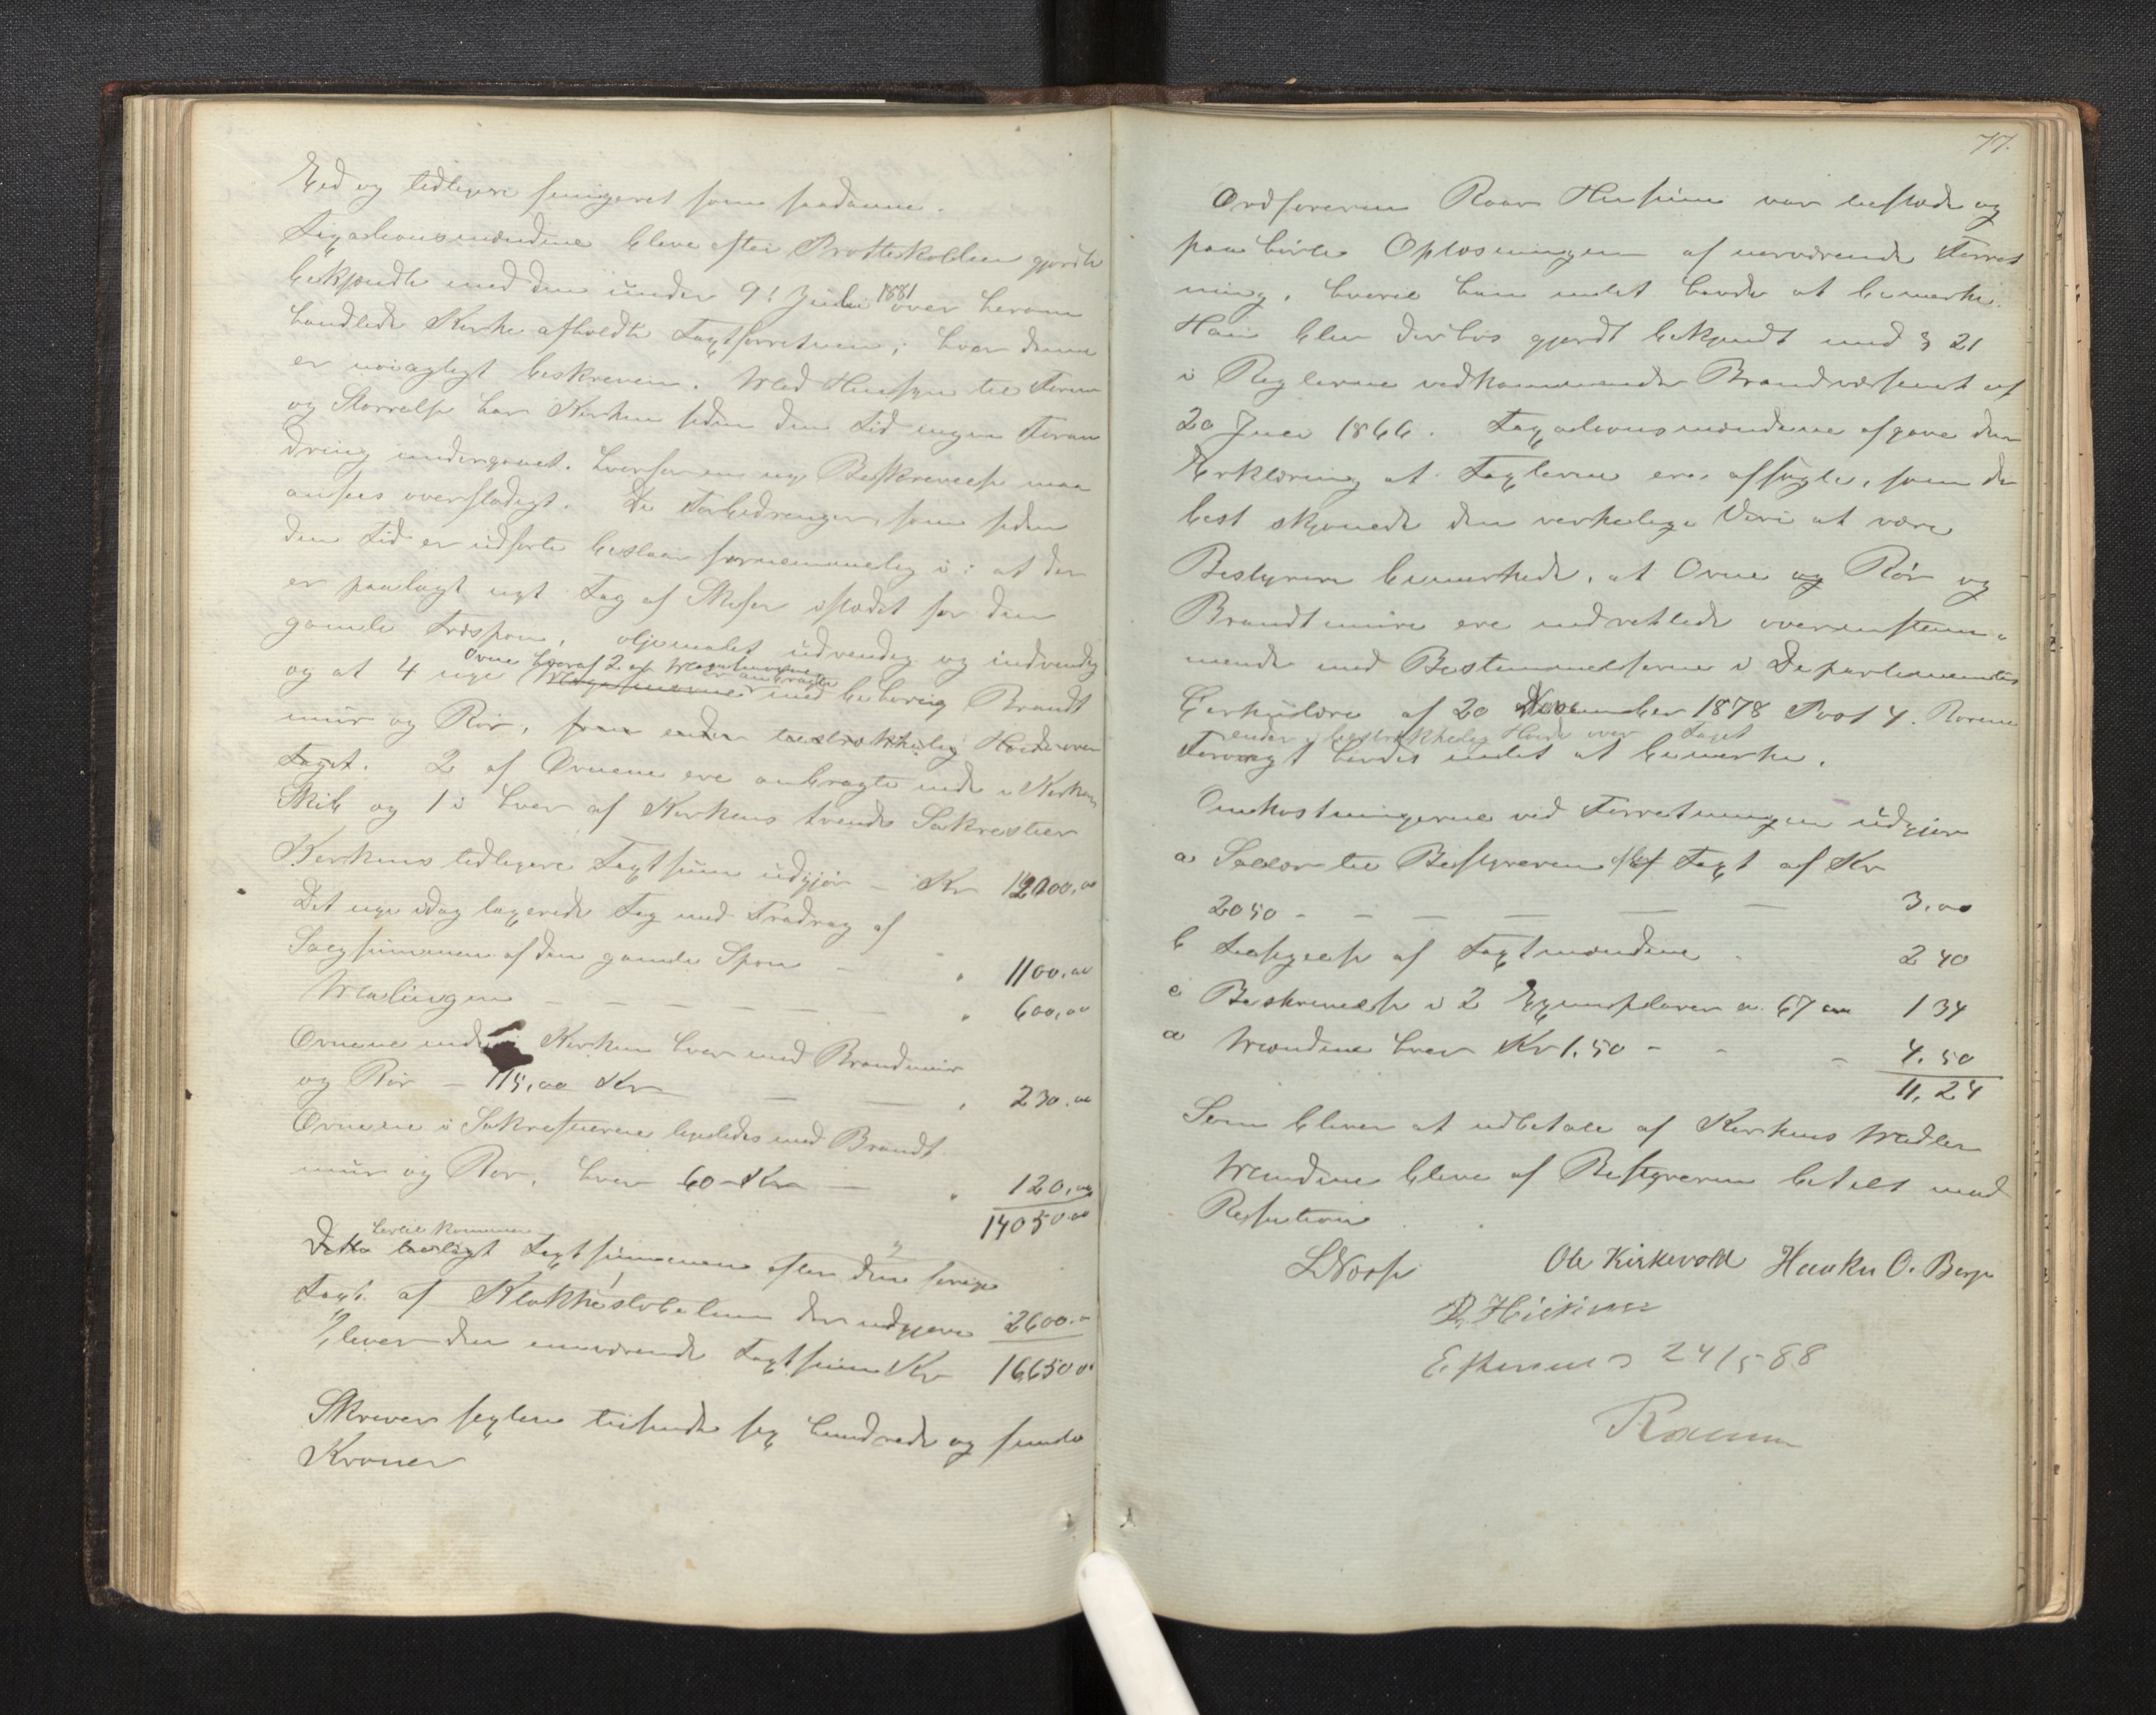 Eed og tidligere fungeret som saadanne.
Taxationsmændene bleve efter Protokollen gjordte
bekjendte med den under 9de Juli 1881 over herom
handlede Kirke afholdte Taxtforretnin; hvor denne
er nøiagtigt beskreven. Med Hensyn til Form
og Størrelse har Kirken siden den Tid ingen Foran
dring undergaaet. hvorfor en ny Beskrivelse maa
ansees overflødigt. De Forbedringer, som siden
den Tid er udførte bestaar fornemmelig i: at der
er paalagt nyt Tag af Skifer istedet for den
gamle Træspon, oljemalet udvendig og indvendig
og at 4 nye Ovne hvoraf 2 er Magasinovne er anbragte med behørig Brandt
mur og Rør, som ender tilstrækkelig Høide over
Taget. 2 af Ovnene ere anbragte inde i Kirkens
Skib og 1 i hver af Kirkens tvende Sakrestier
Kirkens tidligere Taxtsum udgjør – Kr 12000,00
Det nye idag taxerede Tag med Fradrag af
Salgsummen af den gamle Spon – " 1100,00
Malingen – – – – – " 600,00
Ovnene inde i Kirken hver med Brandmur
og Rør – 115,00 Kr – – " 230,00
Ovnene i Sakrestierne ligeledes med Brandt
mur og Rør, hver 60 Kr – " 120,00
14050.00
Dette hertil kommer lagt Taxtsummen efter den forrige
Taxt. af Klokkestøbelen der udgjøre 2600.–
bliver den nuværende Taxtsum Kr 16650 00
Skriver sexten tusinde sex hundrede og femti
Kroner
77.
Ordføreren Roar Husum var tilstede og
paahørte Oplæsningen af nærværende Forret
ning, hvortil han intet havde at bemærke.
Han blev derhos gjordt bekjendt med § 21
i Reglerne vedkommende Brandvæsenet af
20 Juni 1866. Taxationsmændene afgave den
Erklæring at Taxterne ere afsagte, som de
best skjønnede den verkelige Væri at være
Bestyreren bemerkede, at Ovne og Rør og
Brandtmure ere indrettede overensstem-
mende med Bestemmelserne i Departementets
Cirkulære af 20 November 1878 Post 4. Rørene
ender i tilstrækkelig Høide over Taget
Forøvrigt havdes intet at bemerke.
Omkostningerne ved Forretningen udgjør
a Salær til Bestyreren af Taxt af Kr
2050 – – – – – – 3.00
b Tilsigelse af Taxtmændene – 2 40
c Beskrivelse i 2 Exemplarer a. 67 øre 1 34
d Mændene hver Kr 1.50 – – – 4.50
11,24
Som bliver at udbetale af Kirkens Midler
Mændene bleve af Bestyreren betalt mod
Restution
Ole Kirkevold Hauken O. Berge
R. Husum
Efterseet 24/5 88